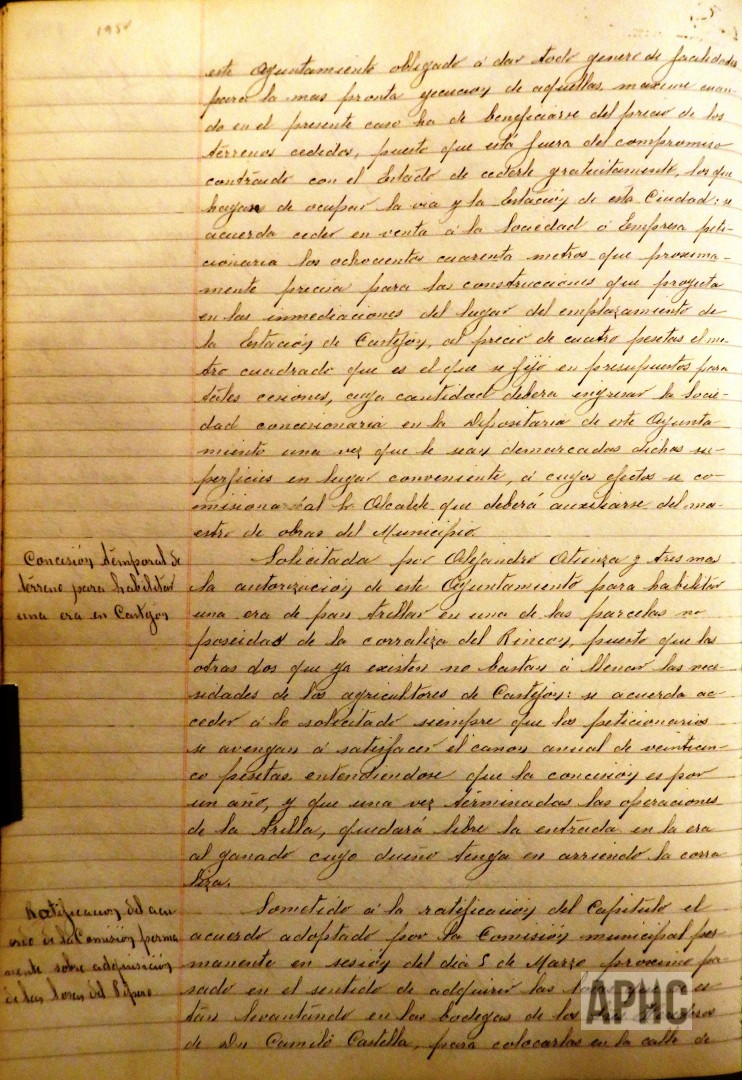 este Ayuntamiento obligado á dar todo genero de facilidades
para la mas pronta ejecucion de aquellas, maxime cuan-
do en el presente caso ha de beneficiarse del precio de los
terrenos cedidos, puesto que está fuera del compromiso
contraido con el Estado de cederle gratuitamente, los que
hayan de ocupar la via y la Estación de esta Ciudad: se
acuerda ceder en venta á la Sociedad ó Empresa peti-
cionaria los ochocientos cuarenta metros que proxima-
mente precisa para las construcciones que proyecta
en las inmediaciones del lugar del emplazamiento de
la Estación de Castejón, al precio de cuatro pesetas el me-
tro cuadrado que es el que se fijó en presupuestos para
tales cesiones, cuya cantidad deberá ingresar la Socie-
dad concesionaria en la Depositaria de este Ayunta-
miento una vez que le sean demarcadas dichas su-
perficies en lugar conveniente, á cuyos efectos se co-
misiona al Sr Alcalde que deberá auxiliarse del ma-
estro de obras del Municipio.
Concesión temporal de
terreno para habilitar
una era en Castejon
Solicitada por Alejandro Atienza y tres mas
la autorizacion de este Ayuntamiento para habilitar
una era de pan trillar en una de las parcelas no
poseidas de la corraliza del Rincon, puesto que las
otras dos que ya existen no bastan á llenar las nece-
sidades de los agricultores de Castejon: se acuerda ac-
ceder á lo solicitado siempre que los peticionarios
se avengan á satisfacer el canon anual de veinticin-
co pesetas entendiendose que la concesión es por
un año, y que una vez terminadas las operaciones
de la trilla, quedará libre la entrada en la era
al ganado cuyo dueño tenga en arriendo la corra
liza.
Ratificacion del acu
erdo de la Comisión perma
nente sobre adquisición
de las losas del
Sometido á la ratificación del Capitulo el
acuerdo adoptado por la Comisión municipal per-
manente en sesión del dia 5 de Marzo proximo pa-
sado en el sentido de adquirir las es
tan levantando en las bodegas de los
de Dn Camilo Castilla, para colocarlas en la calle de
APHC